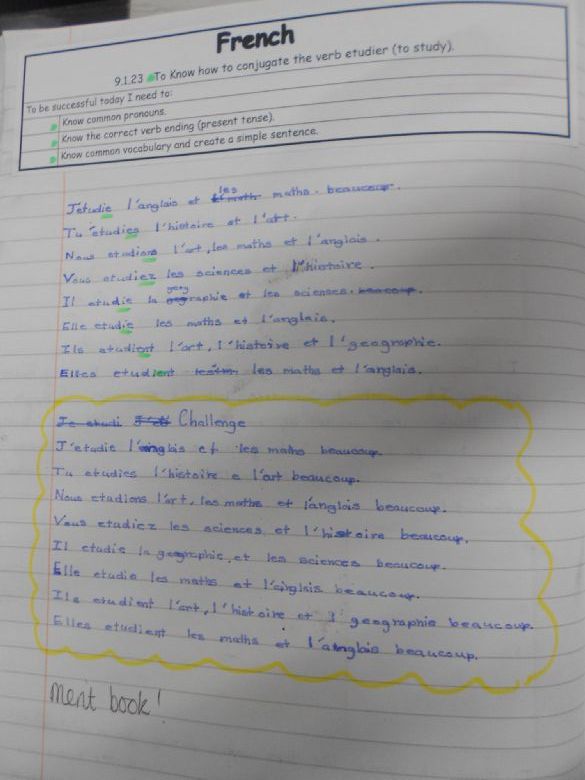 French
9.1.23 To Know how to conjugate the verb etudier (to study).
To be successful today I need to:
Know common pronouns.
Know the correct verb ending (present tense).
Know common vocabulary and create a simple sentence.
J'étudie l'anglais et les maths. beaucoup.
Tu étudies l'histoire et l'art.
Nous etudions l'art, les maths et l'anglais.
Vous etudiez les sciences et l'histoire.
Il etudie la geographie et les sciences. beaucoup.
Elle etudie les maths et l'anglais.
Ils etudient l'art, l'histoire et l'geographie.
Elles etudient les maths et l'anglais.
Je etudi Challenge
J'etudie l'anglais et les maths beaucoup
Tu etudies l'histoire e l'art beaucoup.
Nous etudions l'art, les maths et l'anglois beaucoup.
Vous etudiez les sciences et l'histoire beaucoup.
Il etudie la geographie, et les sciences beaucoup.
Elle etudie les maths et l'anglais beaucoup.
Ils etudient l'art, l'histoire et geographie beaucoup.
Elles etudient les maths et l'anglais beaucoup.
merit book!